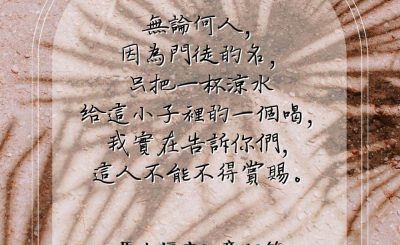 無論何人，
因為門徒的名，
只把一杯涼水
給這小子裡的一個喝，
我實在告訴你們，
這人不能不得賞賜。